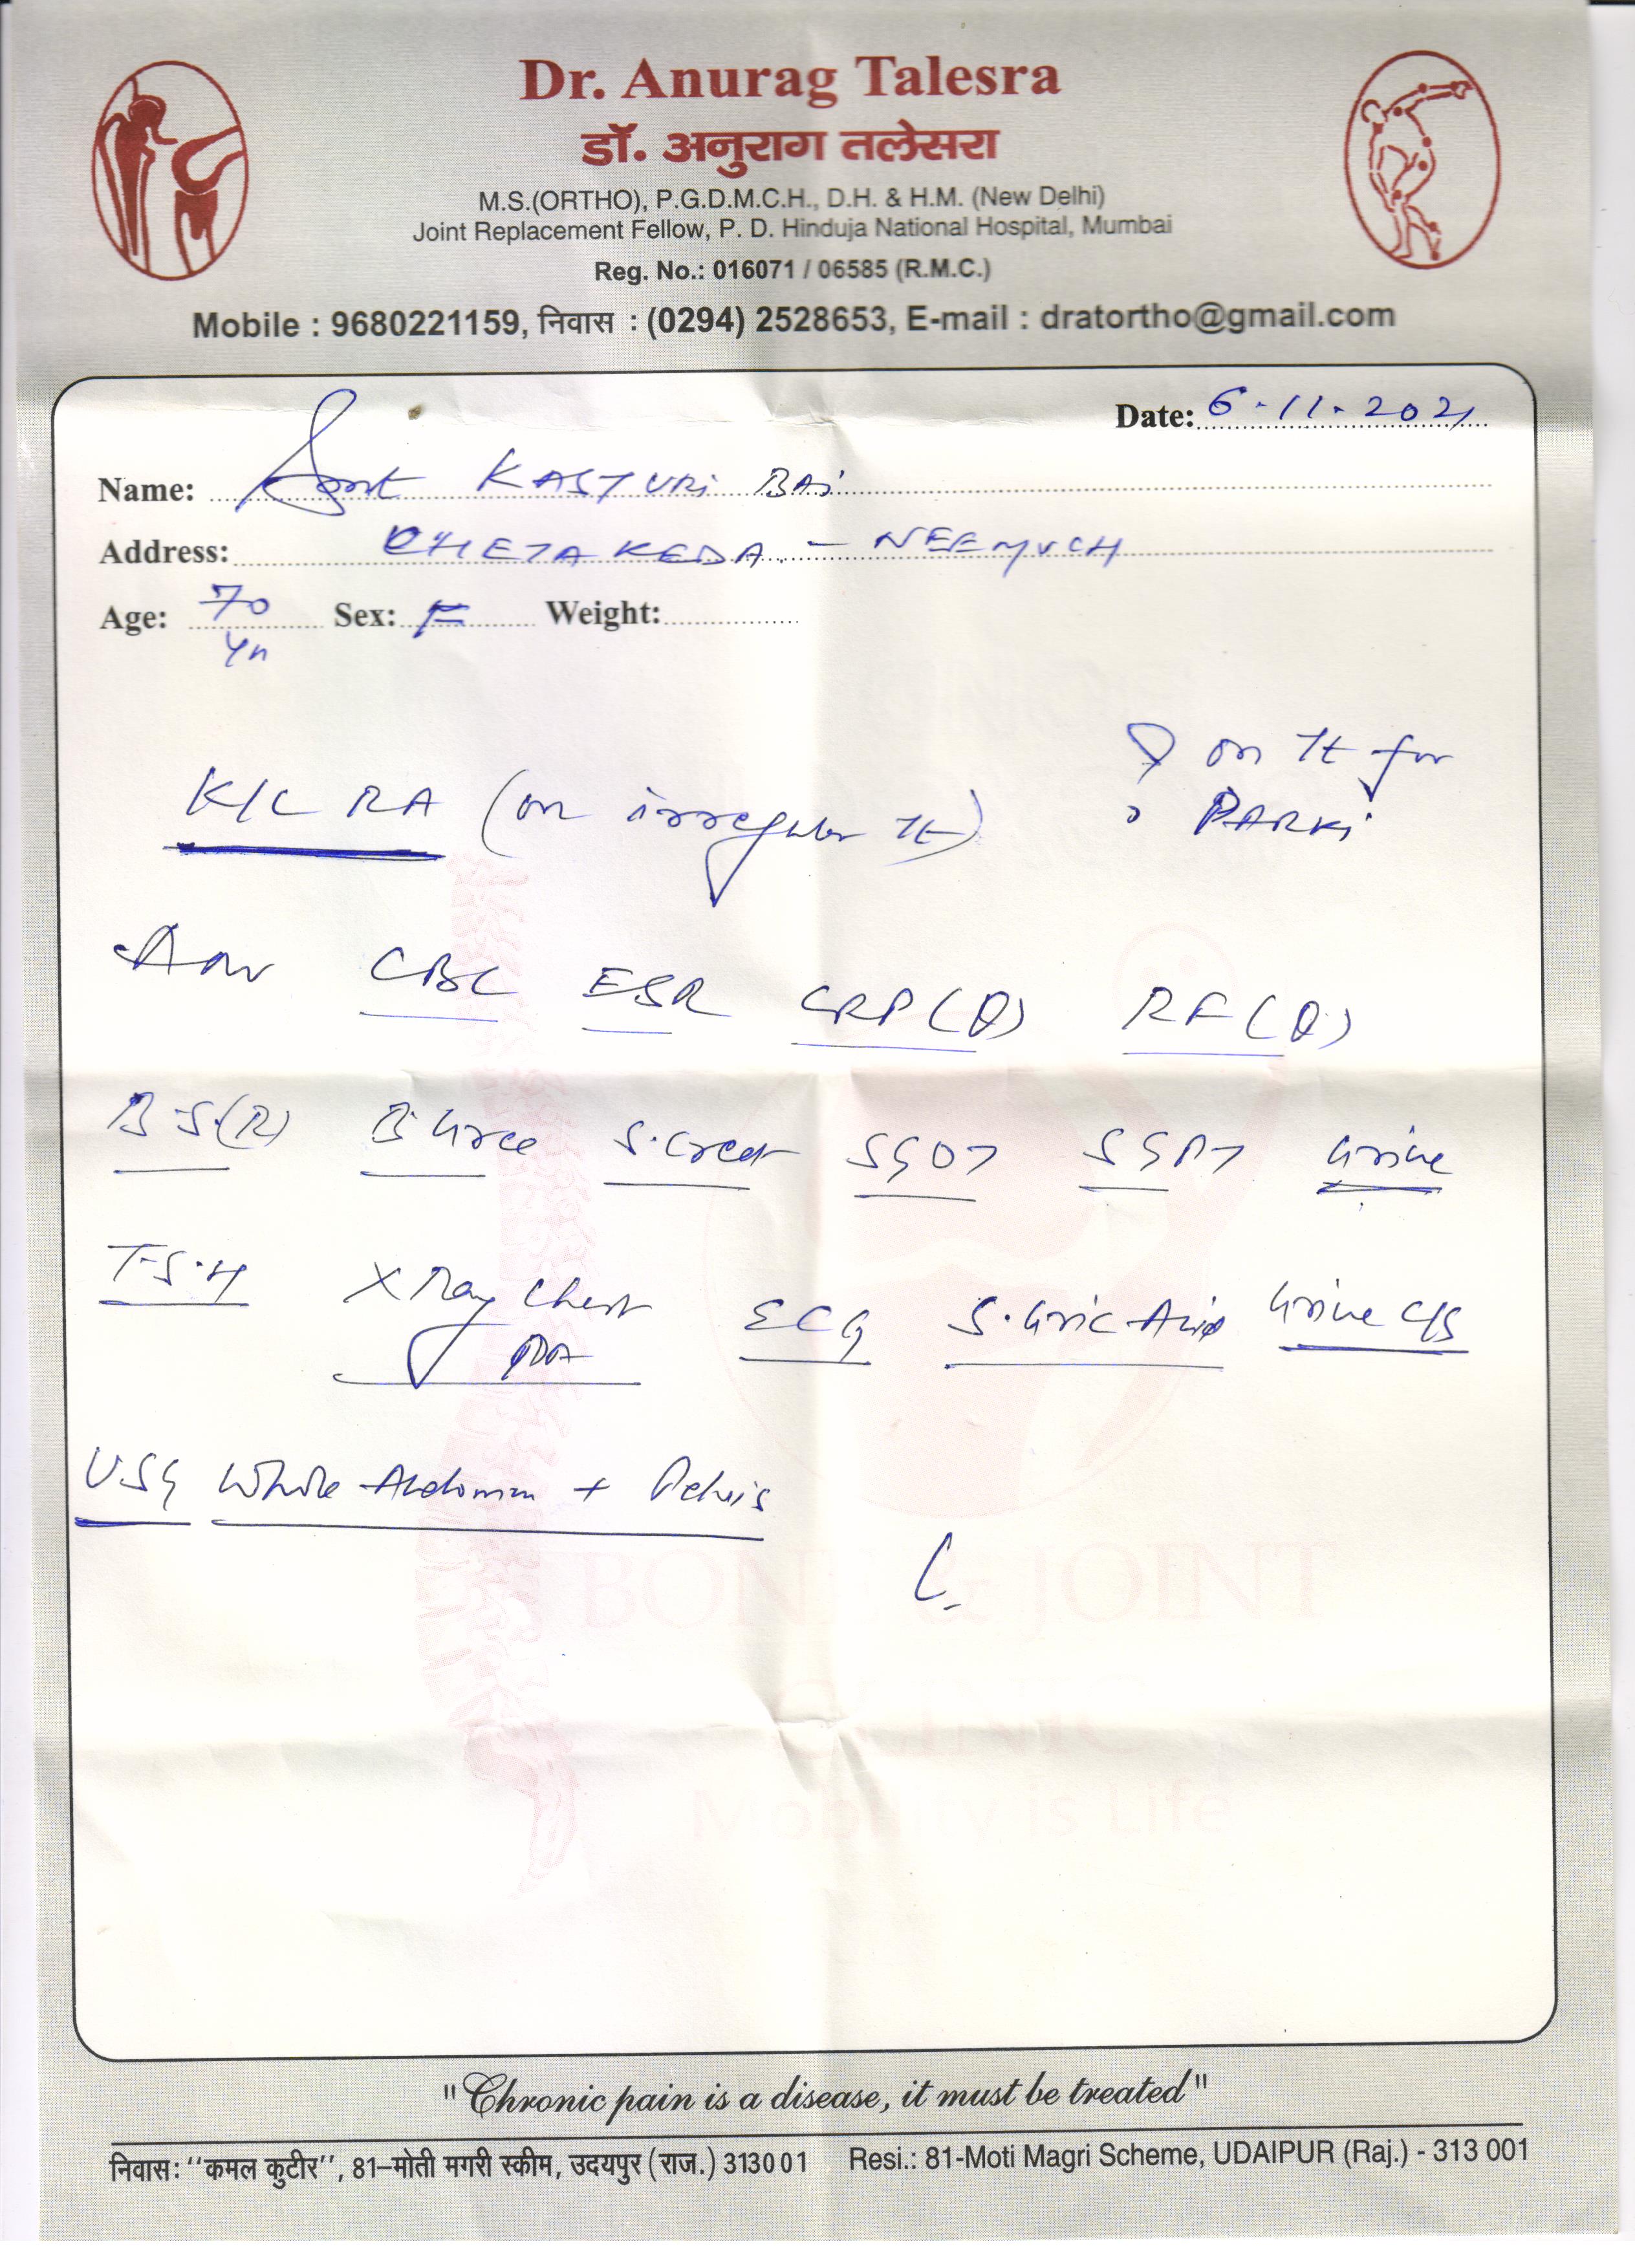 Dr. Anurag Talesra
डॉ. अनुराग तलेसरा
M.S.(ORTHO), P.G.D.M.C.H., D.H. & H.M. (New Delhi)
Joint Replacement Fellow, P. D. Hinduja National Hospital, Mumbai
Reg. No.: 016071 / 06585 (R.M.C.)
Mobile : 9680221159, निवास : (0294) 2528653, E-mail : dratortho@gmail.com
Date: 6.11.2021
Name: Smt KASTURi BAi
Address: KHETAKEDA - NEEMUCH
Age: 70 Sex: F Weight:
yr
on Tt for
PARKi
K/C RA (on irregular Tt)
Adv CBC ESR CRP (Q) RF (Q)
B.S.(R) B.Urea S.Creat SGOT SGPT Urine
T.S.H X Ray Chest ECG S.Uric Acid Urine C/S
PA
USG Whole Abdomen + Pelvis
BONE & JOINT
CLINIC
Mobility is Life
"Chronic pain is a disease, it must be treated"
निवास: ‘‘कमल कुटीर’’, 81–मोती मगरी स्कीम, उदयपुर (राज.) 313001 Resi.: 81-Moti Magri Scheme, UDAIPUR (Raj.) - 313 001